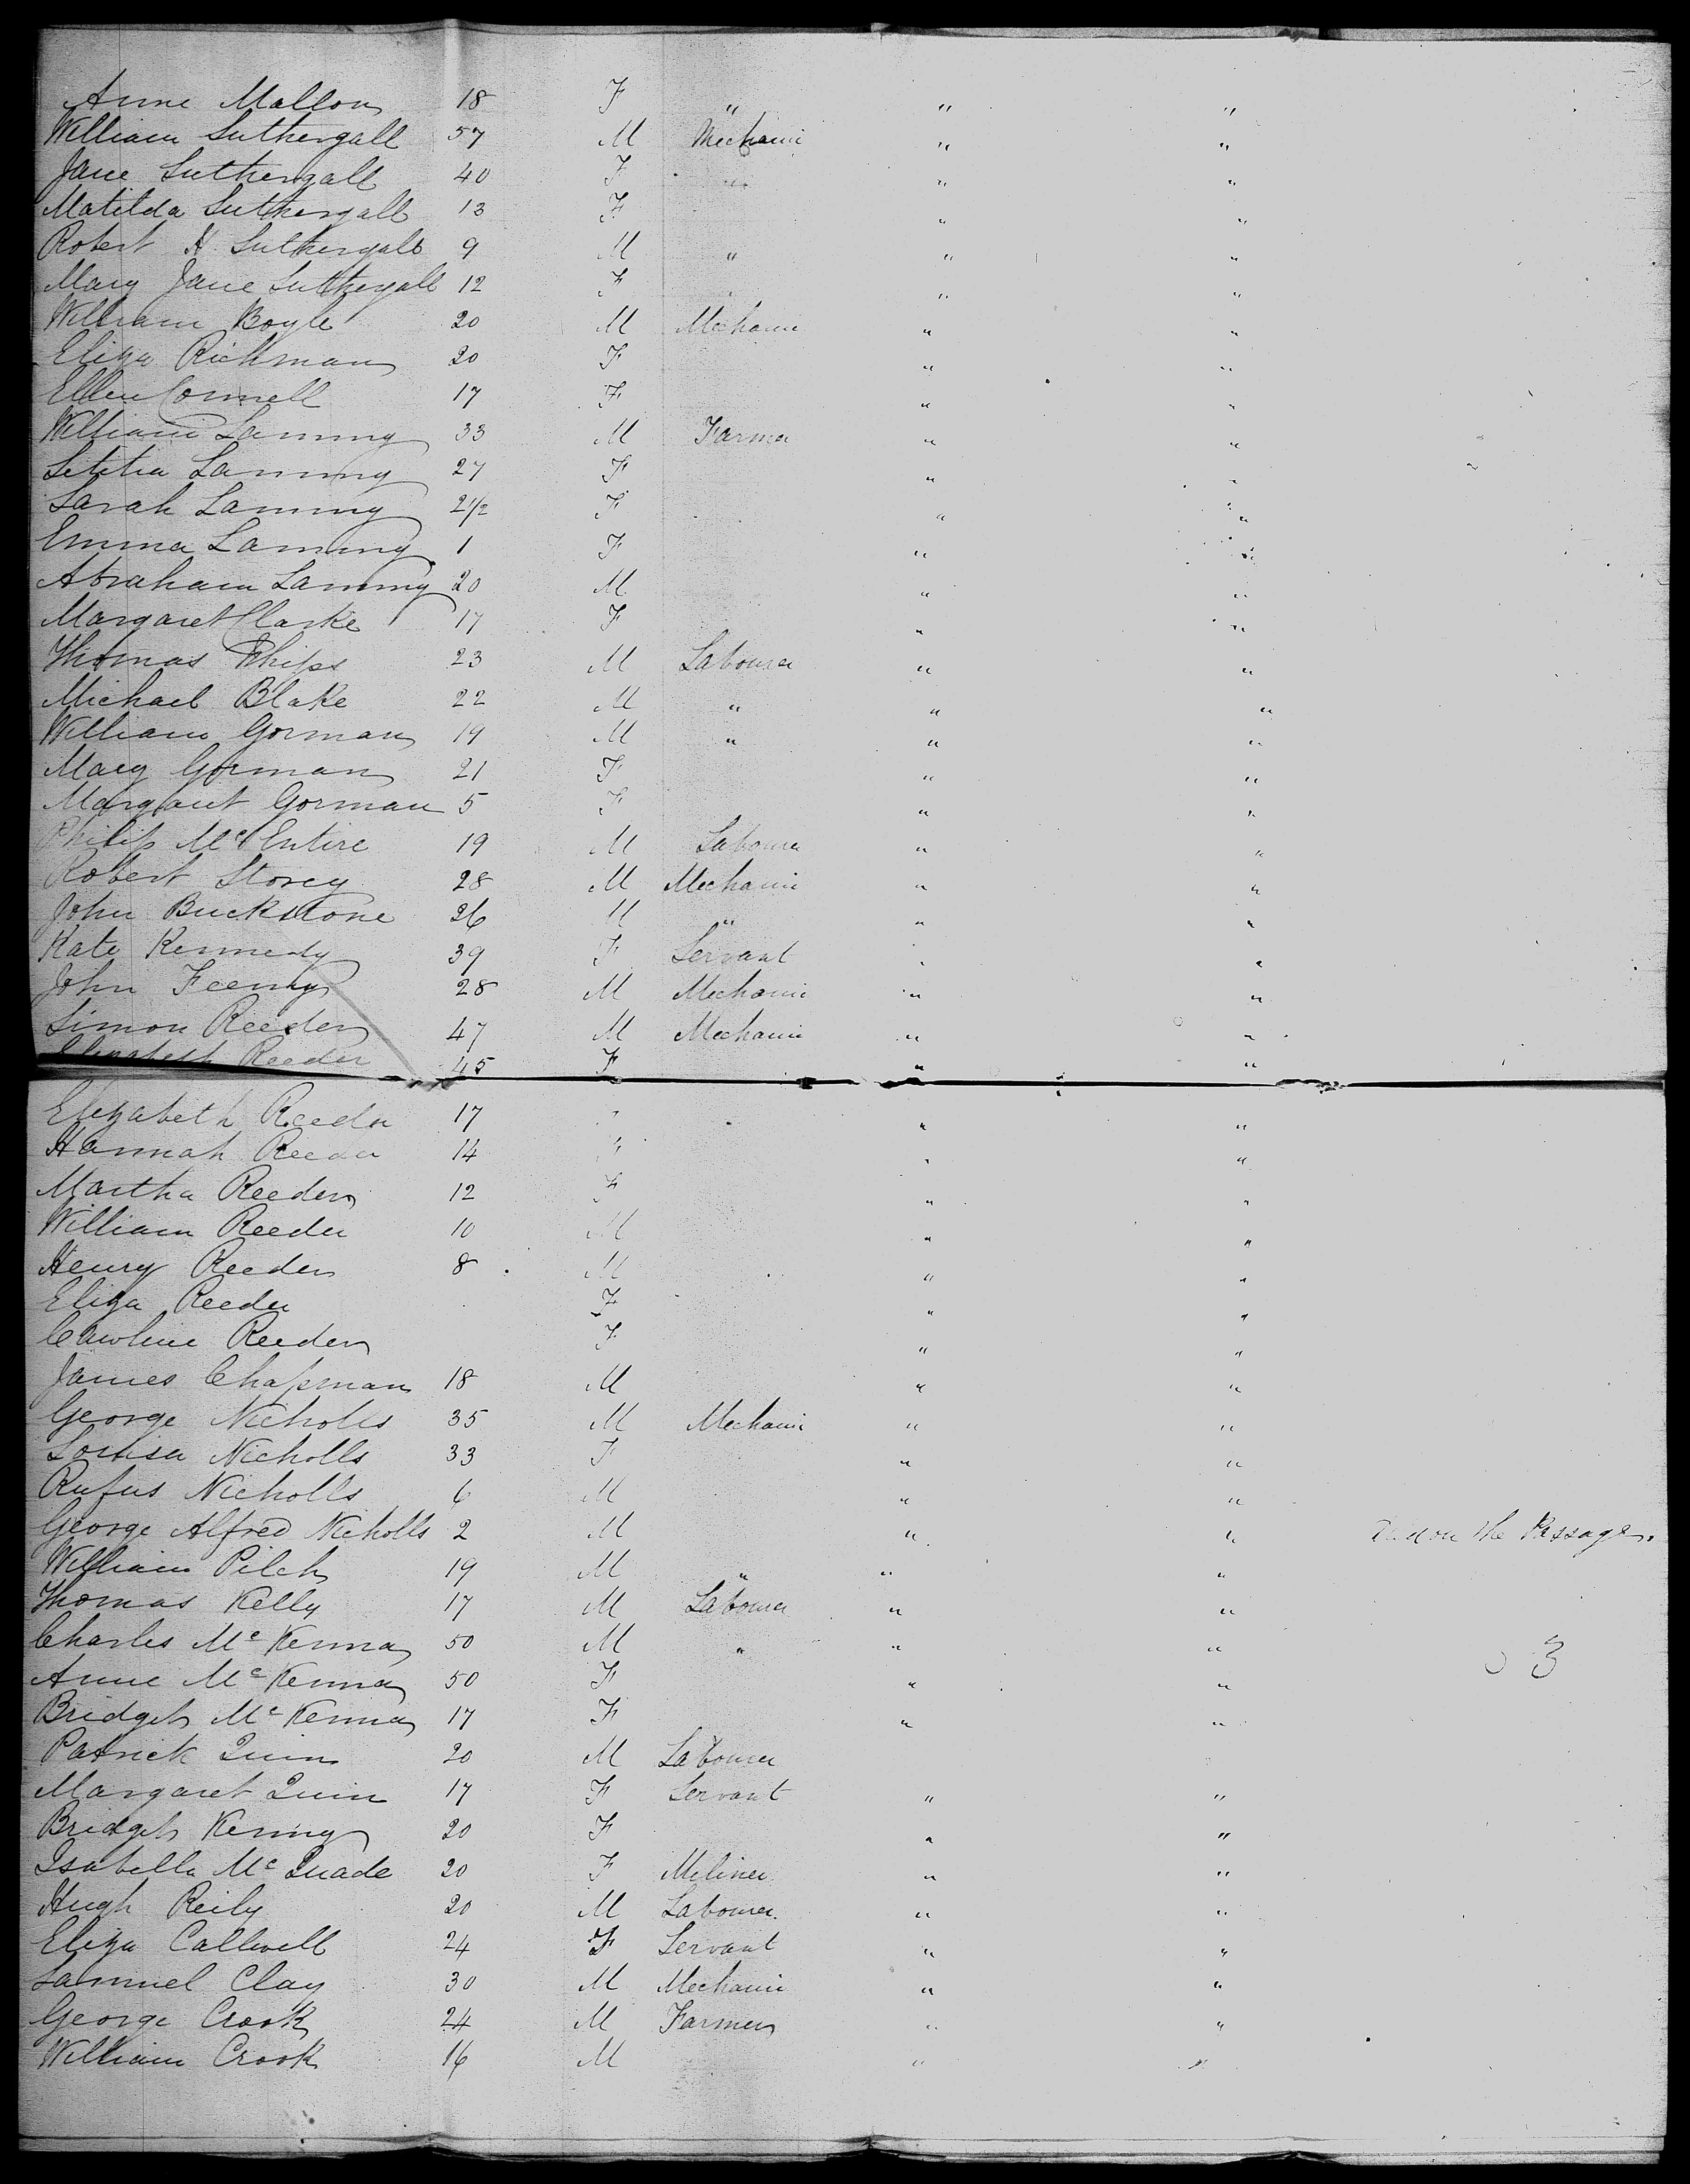 Anne Mallon 18 F " " "
William Suthergall 57 M Mechanic " "
Jane Suthergall 40 F " " "
Matilda Suthergall 13 F " "
Robert H Suthergall 9 M " " "
Mary Jane Suthergall 12 F " "
William Boyle 20 M Mechanic " "
Eliza Richman 20 F " "
Ellen Connell 17 F " "
William Lamming 33 M Farmer " "
Letitia Lamming 27 F " "
Sarah Lamming 2 1/2 F " "
Emma Lamming 1 F " "
Abraham Lamming 20 M " "
Margaret Clarke 17 F " "
Thomas Phips 23 M Labourer " "
Michael Blake 22 M " " "
William Gorman 19 M " " "
Mary Gorman 21 F " "
Margaret Gorman 5 F " "
Philip McEntire 19 M Labourer " "
Robert Storey 28 M Mechanic " "
John Buckstone 26 M " " "
Kate Kennedy 39 F Servant " "
John Feeny 28 M Mechanic " "
Simon Reeder 47 M Mechanic " "
Elizabeth Reeder 45 F " "
Elizabeth Reeder 17 " " "
Hannah Reeder 14 " " "
Martha Reeder 12 F " "
William Reeder 10 M " "
Henry Reeder 8 M " "
Eliza Reeder F " "
Caroline Reeder F " "
James Chapman 18 M " "
George Nicholls 35 M Mechanic " "
Louisa Nicholls 33 F " "
Rufus Nicholls 6 M " "
George Alfred Nicholls 2 M " " Died on the Passage.
William Pilch 19 M " " "
Thomas Kelly 17 M Labourer " "
Charles McKenna 50 M " " " 3
Anne McKenna 50 F " "
Bridget McKenna 17 F " "
Patrick Quin 20 M Labourer
Margaret Quin 17 F Servant " "
Bridget Kenny 20 F " "
Isabella McQuade 20 F Miliner " "
Hugh Reily 20 M Labourer " "
Eliza Callwell 24 F Servant " "
Samuel Clay 30 M Mechanic " "
George Crook 24 M Farmer " "
William Crook 16 M " "